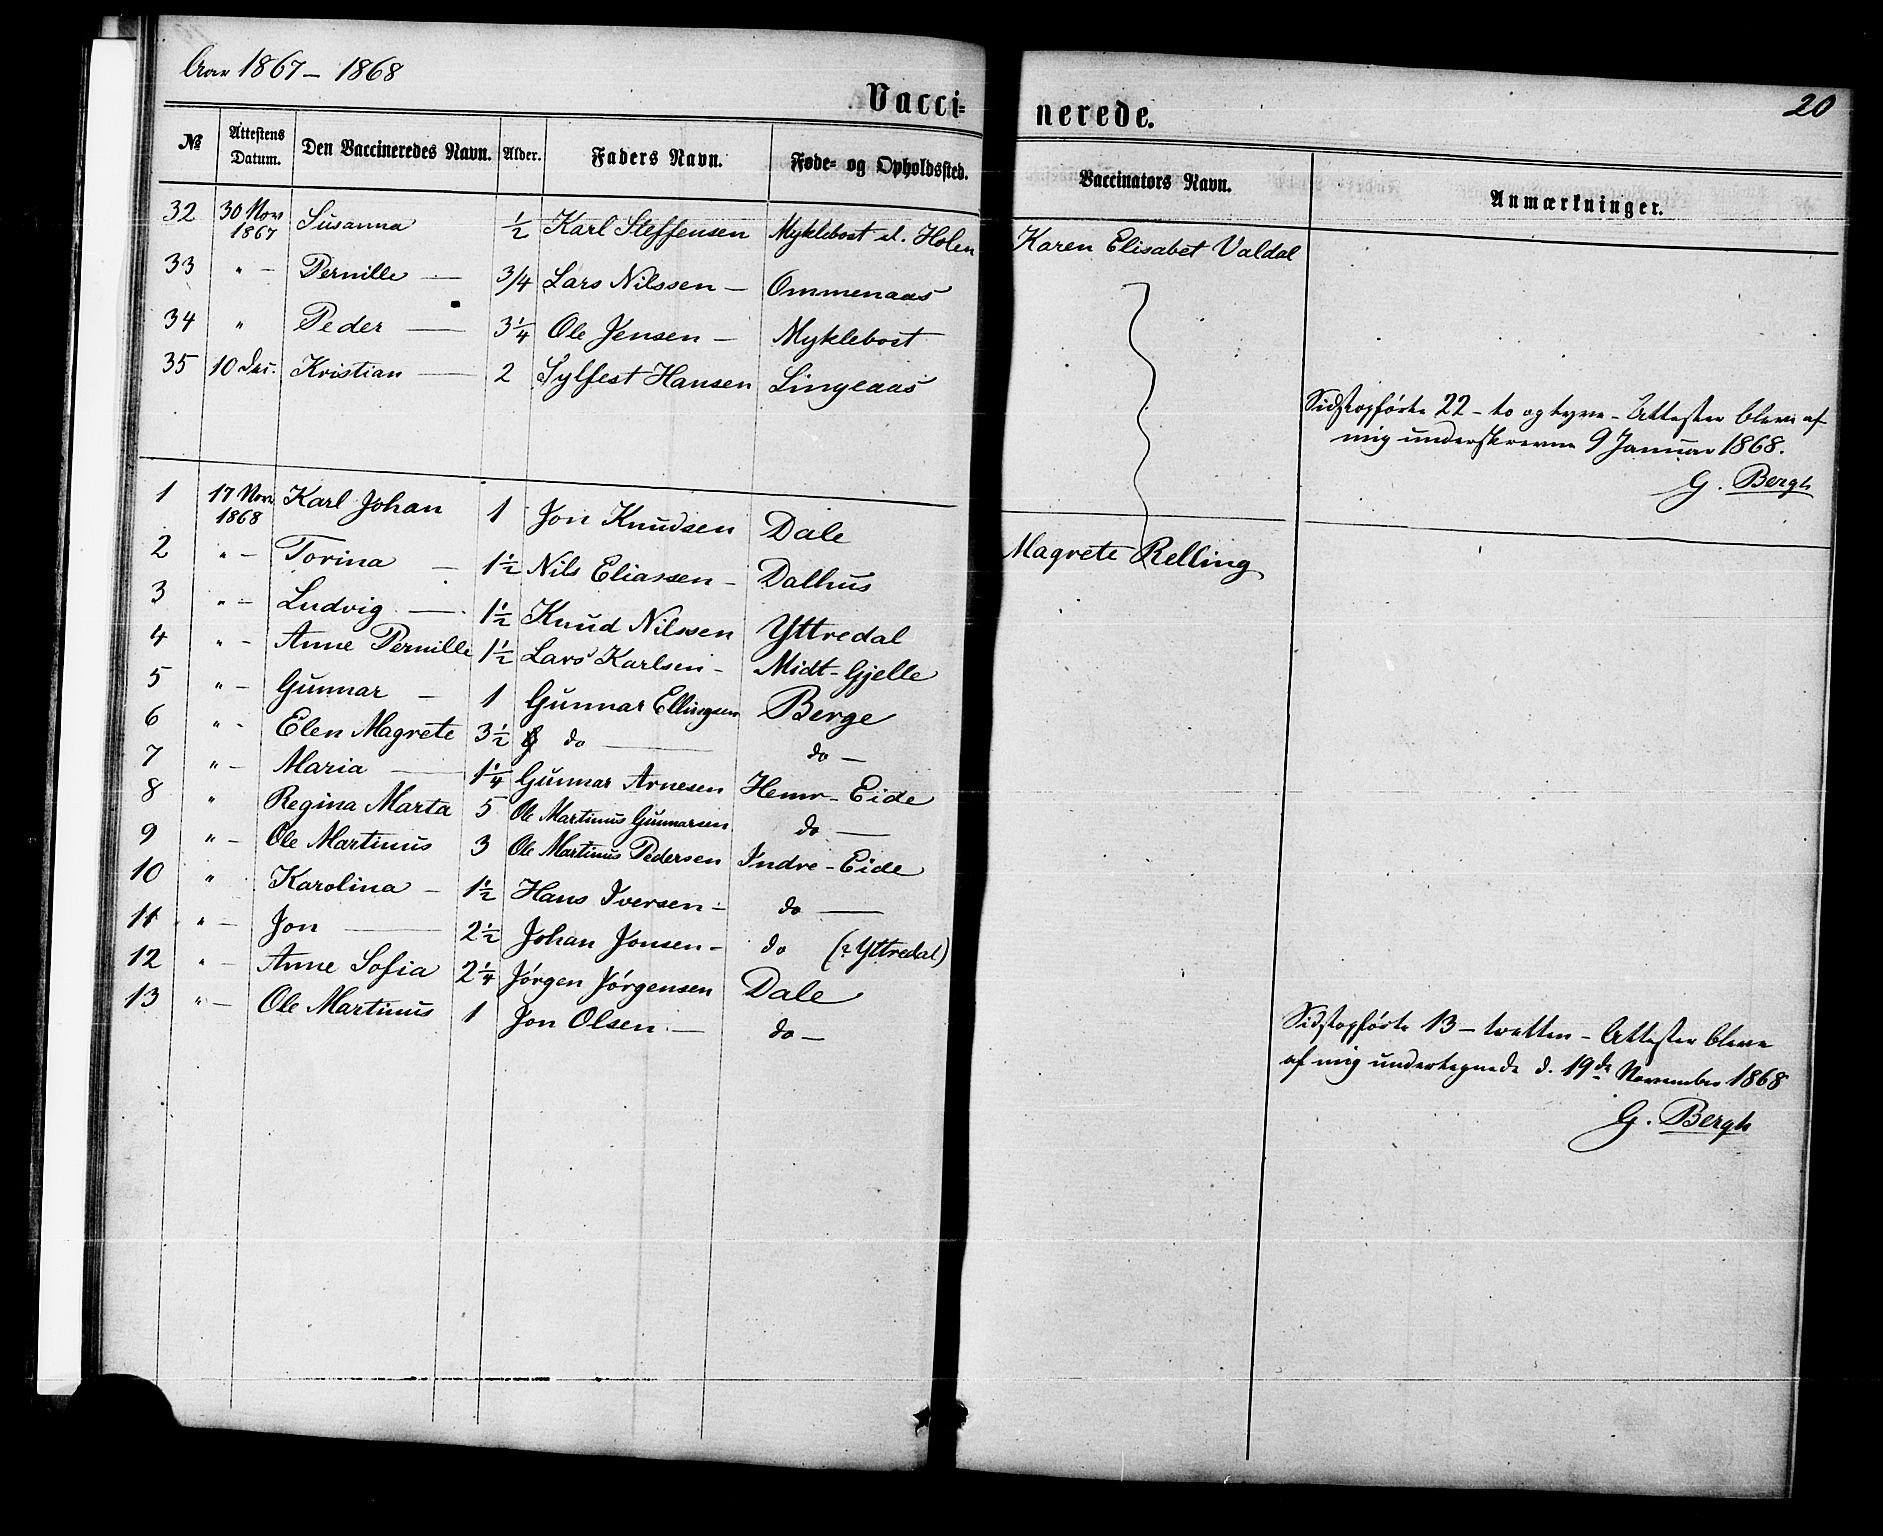 Aar 1867 - 1868
20
Vacci= nerede.
№ Attestens Datum. Den Vaccineredes Navn. Alder. Faders Navn. Føde- og Opholdssted. Vaccinators Navn. Anmærkninger.
32 30 Nov 1867 Susanna ½ Karl Steffensen Myklebost el. Holen Karen Elisabet Valdal
33 " - Pernille - 3/4 Lars Nilssen - Ommenaas
34 " Peder - 3¼ Ole Jensen - Myklebost
35 10 Dec. Kristian - 2 Sylfest Hansen Lingeaas
Sidstopførte 22 - to og tyve - Attester bleve af
mig underskrevne 9 Januar 1868.
G. Bergh
1 17 Nov. 1868 Karl Johan 1 Jon Knudsen Dale Magrete Relling
2 " - Torina - 1½ Nils Eliassen - Dalhus
3 " - Ludvig - 1½ Knud Nilssen Yttredal
4 " - Anne Pernille 1½ Lars Karlsen - Midt-Gjelle
5 " - Gunnar - 1 Gunnar Ellingsen Berge
6 " - Elen Magrete 3½ do - do -
7 " - Maria - 1¼ Gunnar Arnesen Hemr-Eide
8 " Regina Marta 5 Ole Martinus Gunnarsen do -
9 " - Ole Martinus 3 Ole Martinus Pedersen Indre-Eide
10 " Karolina - 1½ Hans Iversen - do -
11 " - Jon - 2½ Johan Jonsen - do (? Yttredal)
12 " - Anne Sofia 2¼ Jørgen Jørgensen Dale
13 " - Ole Martinus 1 Jon Olsen - do -
Sidstopførte 13 - tretten - Attester bleve
af mig undertegnede d. 19de November 1868
G. Bergh